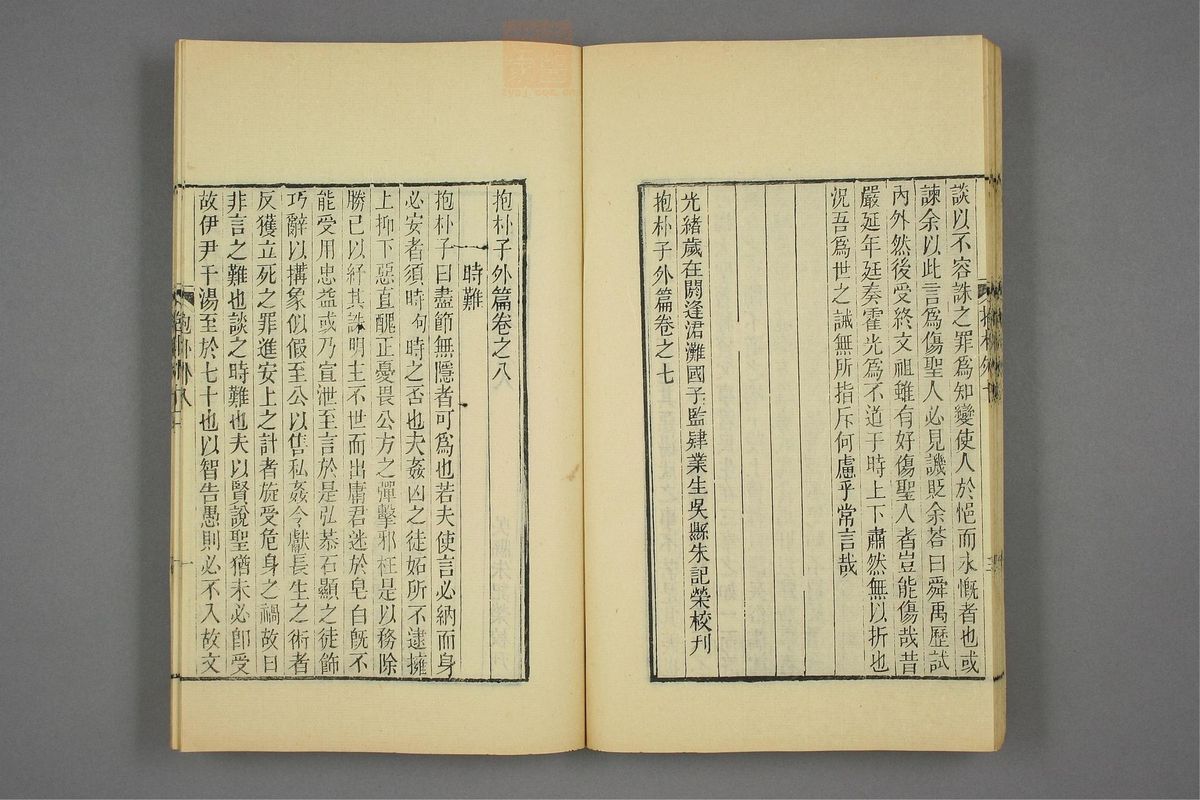 談以不容誅之罪爲知變使人於悒而永慨者也或
諫余以此言爲傷聖人必見譏貶余荅曰舜禹歷試
內外然後受終文祖雖有好傷聖人者豈能傷哉昔
嚴延年廷奏霍光爲不道于時上下肅然無以折也
況吾爲世之誡無所指斥何慮乎常言哉
光緒歲在閼逢涒灘國子監肄業生吳縣朱記榮校刋
抱朴子外篇卷之七
抱朴子外篇卷之八
時難
抱朴子曰盡節無隱者可爲也若夫使言必納而身
必安者須時向時之否也夫姦凶之徒妬所不逮擁
上抑下惡直醜正憂畏公方之彈擊邪枉是以務除
勝己以紓其誅明主不世而出庸君迷於皂白旣不
能受用忠益或乃宣泄至言於是弘恭石顯之徒飾
巧辭以搆象似假至公以售私姦令獻長生之術者
反獲立死之罪進安上之計者旋受危身之禍故曰
非言之難也談之時難也夫以賢說聖猶未必卽受
故伊尹干湯至於七十也以智告愚則必不入故文